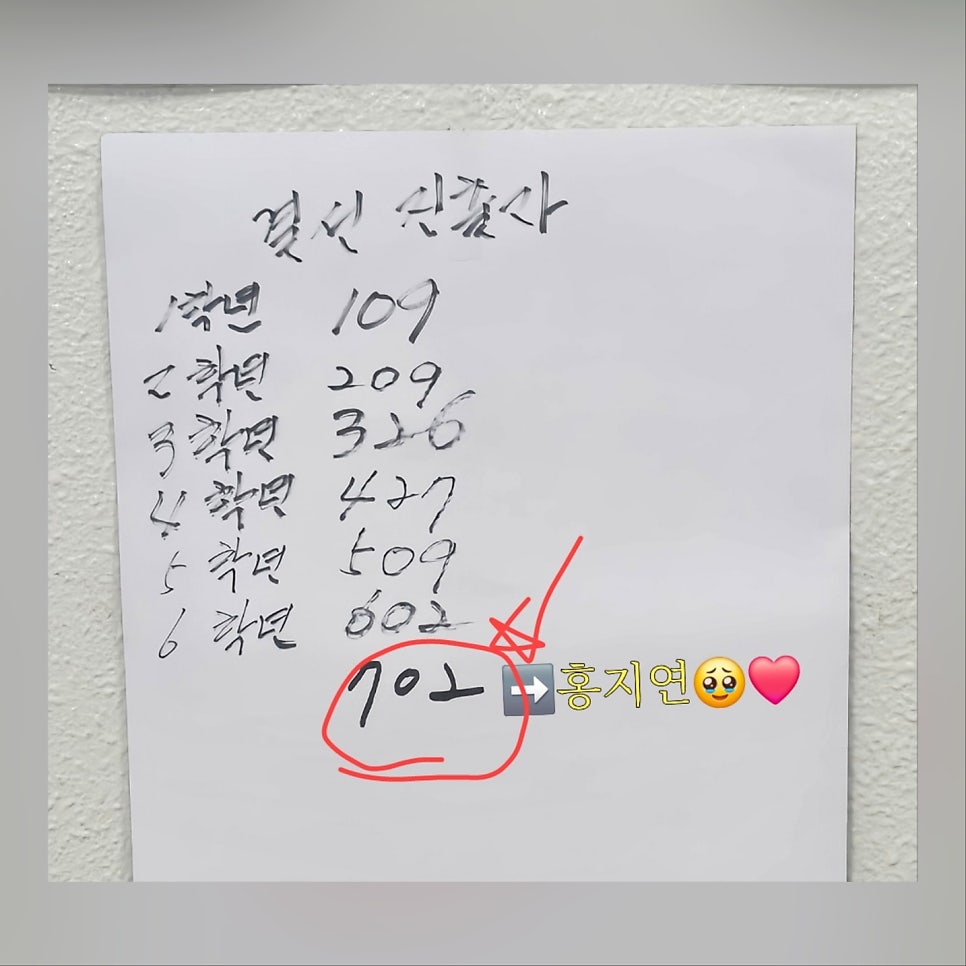 결선 진출자
1학년 109
2학년 209
3학년 326
4학년 427
5학년 509
6학년 602
702 ➡️홍지연🥹❤️